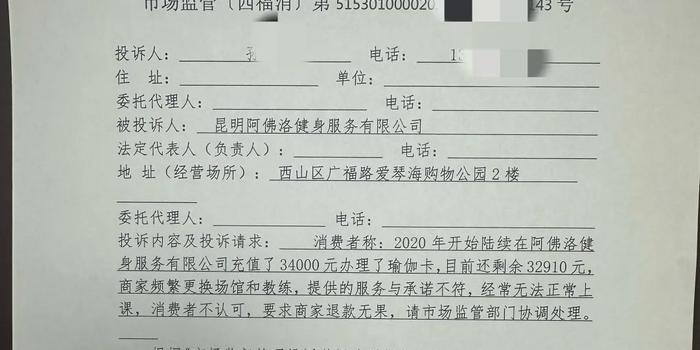 市场监管（四福消）第 515301000020 143 号
投诉人： 孙 电话： 13
住 址： 单位：
委托代理人： 电话：
被投诉人： 昆明阿佛洛健身服务有限公司
法定代表人（负责人）： 电话：
地 址（经营场所）： 西山区广福路爱琴海购物公园 2 楼
委托代理人： 电话：
投诉内容及投诉请求： 消费者称：2020 年开始陆续在阿佛洛健
身服务有限公司充值了 34000 元办理了瑜伽卡，目前还剩余 32910 元，
商家频繁更换场馆和教练，提供的服务与承诺不符，经常无法正常上
课，消费者不认可，要求商家退款无果，请市场监管部门协调处理。